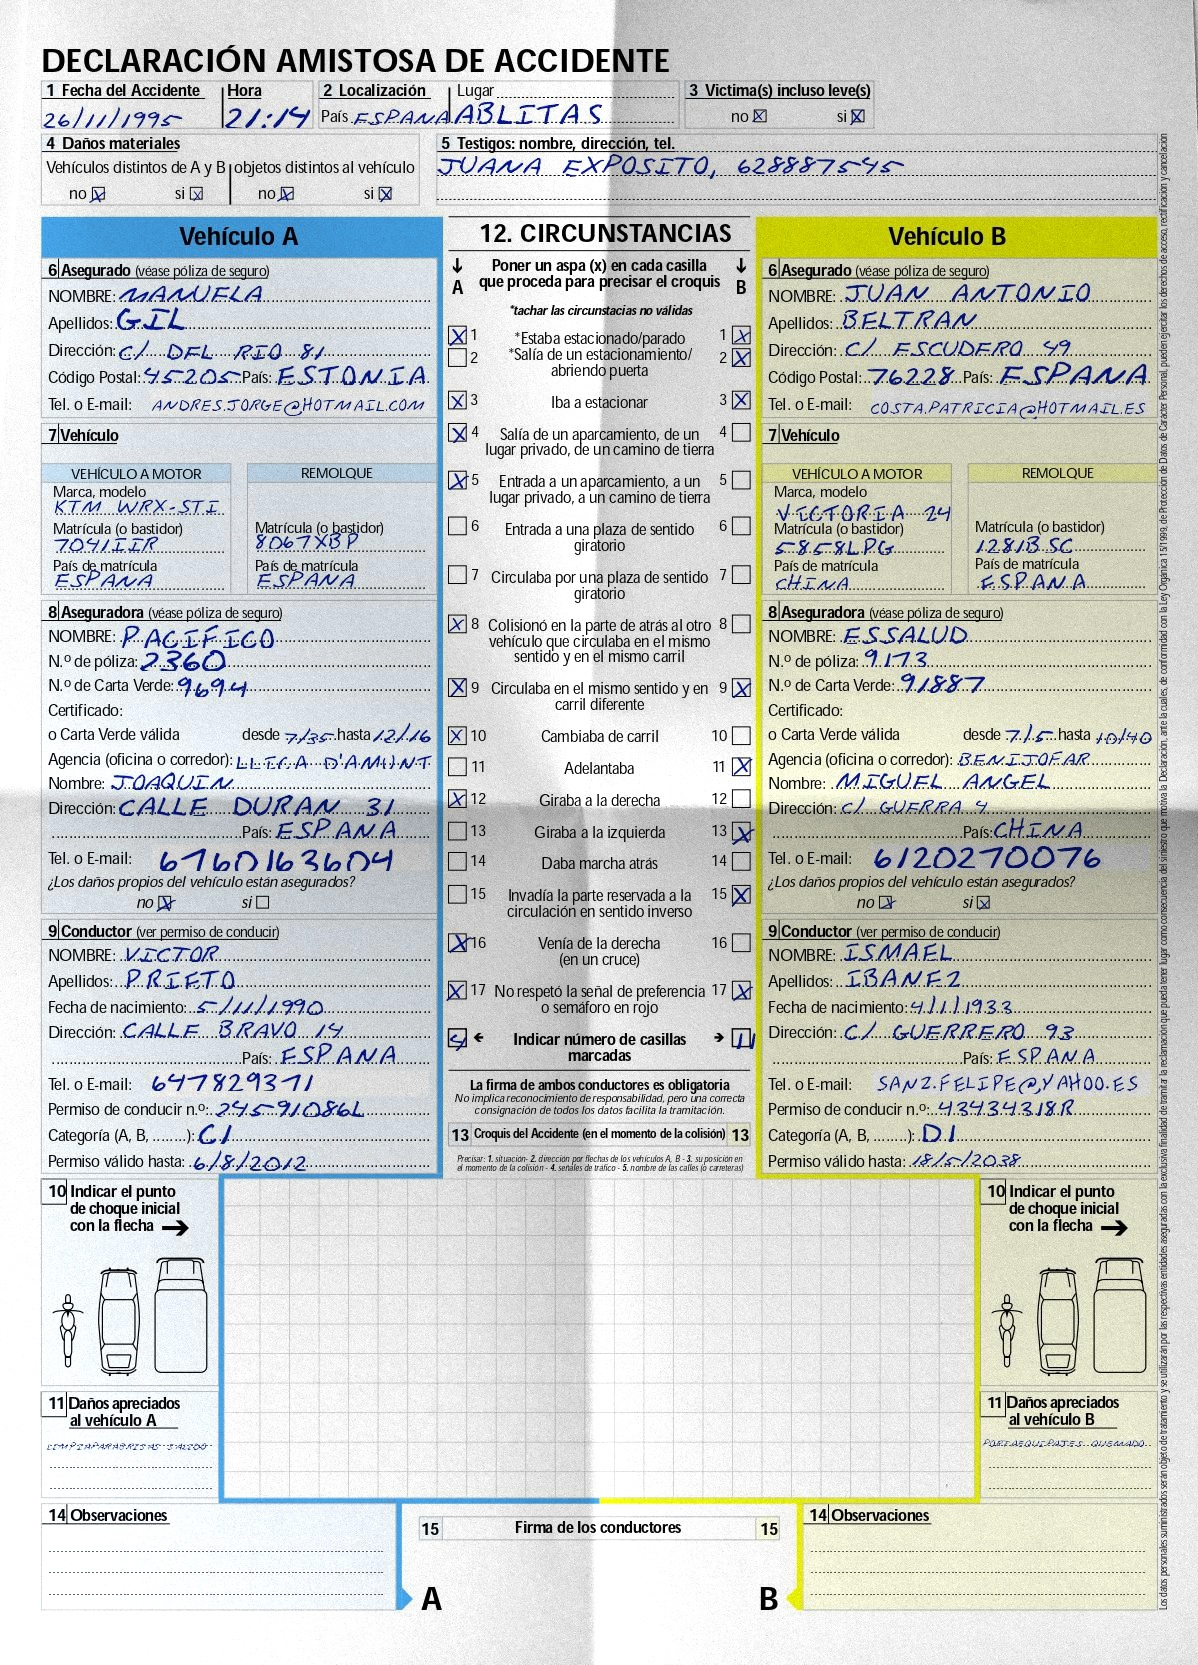 DECLARACIÓN AMISTOSA DE ACCIDENTE
1 Fecha del Accidente Hora 2 Localización Lugar 3 Victima(s) incluso leve(s)
26/11/1995 21:14 País ESPANA ABLITAS no si
4 Daños materiales
Vehículos distintos de A y B objetos distintos al vehículo
no si no si
5 Testigos: nombre, dirección, tel.
JUANA EXPOSITO, 628887545
Vehículo A
6 Asegurado (véase póliza de seguro)
NOMBRE: MANUELA
Apellidos: GIL
Dirección: C/ DEL RIO 81
Código Postal: 45205 País: ESTONIA
Tel. o E-mail: ANDRES.JORGE@HOTMAIL.COM
7 Vehículo
VEHÍCULO A MOTOR REMOLQUE
Marca, modelo
KTM WRX-STI
Matrícula (o bastidor) Matrícula (o bastidor)
7041IIR 8067XBP
País de matrícula País de matrícula
ESPANA ESPANA
8 Aseguradora (véase póliza de seguro)
NOMBRE: PACIFICO
N.º de póliza: 2360
N.º de Carta Verde: 9694
Certificado:
o Carta Verde válida desde 7/35 hasta 12/16
Agencia (oficina o corredor): LLICA D'AMUNT
Nombre: JOAQUIN
Dirección: CALLE DURAN 31
País: ESPANA
Tel. o E-mail: 6760163604
¿Los daños propios del vehículo están asegurados?
no si
9 Conductor (ver permiso de conducir)
NOMBRE: VICTOR
Apellidos: PRIETO
Fecha de nacimiento: 5/11/1990
Dirección: CALLE BRAVO 14
País: ESPANA
Tel. o E-mail: 647829371
Permiso de conducir n.º: 24591086L
Categoría (A, B, ........): C1
Permiso válido hasta: 6/8/2012
12. CIRCUNSTANCIAS
A Poner un aspa (x) en cada casilla que proceda para precisar el croquis B
*tachar las circunstacias no válidas
1 *Estaba estacionado/parado 1
2 *Salía de un estacionamiento/ 2
abriendo puerta
3 Iba a estacionar 3
4 Salía de un aparcamiento, de un 4
lugar privado, de un camino de tierra
5 Entrada a un aparcamiento, a un 5
lugar privado, a un camino de tierra
6 Entrada a una plaza de sentido 6
giratorio
7 Circulaba por una plaza de sentido 7
giratorio
8 Colisionó en la parte de atrás al otro 8
vehículo que circulaba en el mismo
sentido y en el mismo carril
9 Circulaba en el mismo sentido y en 9
carril diferente
10 Cambiaba de carril 10
11 Adelantaba 11
12 Giraba a la derecha 12
13 Giraba a la izquierda 13
14 Daba marcha atrás 14
15 Invadía la parte reservada a la 15
circulación en sentido inverso
16 Venía de la derecha 16
(en un cruce)
17 No respetó la señal de preferencia 17
o semáforo en rojo
Indicar número de casillas 11
marcadas
La firma de ambos conductores es obligatoria
No implica reconocimiento de responsabilidad, pero una correcta
consignación de todos los datos facilita la tramitación.
13 Croquis del Accidente (en el momento de la colisión) 13
Precisar: 1. situación- 2. dirección por flechas de los vehículos A, B - 3. su posición en
el momento de la colisión - 4. señales de tráfico - 5. nombre de las calles (o carreteras)
Vehículo B
6 Asegurado (véase póliza de seguro)
NOMBRE: JUAN ANTONIO
Apellidos: BELTRAN
Dirección: C/ ESCUDERO 49
Código Postal: 76228 País: ESPANA
Tel. o E-mail: COSTA.PATRICIA@HOTMAIL.ES
7 Vehículo
VEHÍCULO A MOTOR REMOLQUE
Marca, modelo
VICTORIA 24
Matrícula (o bastidor) Matrícula (o bastidor)
5858LPG 1281BSC
País de matrícula País de matrícula
CHINA ESPANA
8 Aseguradora (véase póliza de seguro)
NOMBRE: ESSALUD
N.º de póliza: 9173
N.º de Carta Verde: 91887
Certificado:
o Carta Verde válida desde 7/5 hasta 10/40
Agencia (oficina o corredor): BENIJOFAR
Nombre: MIGUEL ANGEL
Dirección: C/ GUERRA 4
País: CHINA
Tel. o E-mail: 6120270076
¿Los daños propios del vehículo están asegurados?
no si
9 Conductor (ver permiso de conducir)
NOMBRE: ISMAEL
Apellidos: IBANEZ
Fecha de nacimiento: 4/1/1933
Dirección: C/ GUERRERO 93
País: ESPANA
Tel. o E-mail: SANZ.FELIPE@YAHOO.ES
Permiso de conducir n.º: 43434318R
Categoría (A, B, ........): D1
Permiso válido hasta: 18/5/2038
10 Indicar el punto
de choque inicial
con la flecha
11 Daños apreciados
al vehículo A
LIMPIAPARABRISAS
10 Indicar el punto
de choque inicial
con la flecha
11 Daños apreciados
al vehículo B
PORTAEQUIPAJES QUEMADO
14 Observaciones
15 Firma de los conductores 15
A B
14 Observaciones
Los datos personales suministrados serán objeto de tratamiento y se utilizarán por las respectivas entidades aseguradas con la exclusiva finalidad de tramitar la reclamación que pueda tener lugar como consecuencia del siniestro que motiva la Declaración, ante la cuales, de conformidad con la Ley Orgánica 15/1999, de Protección de Datos de Carácter Personal, pueden ejercitar los derechos de acceso, rectificación y cancelación